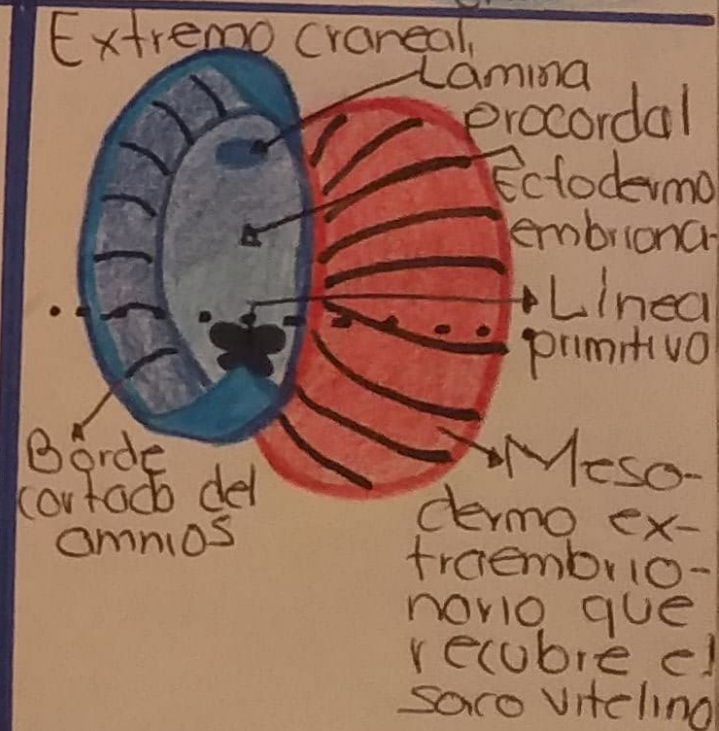 Extremo craneal,
Lamina
procordal
Ectodermo
embriona-
Línea
primitivo
Borde
cortado del
amnios
Meso-
dermo ex-
traembrio-
nario que
recubre el
saco vitelino